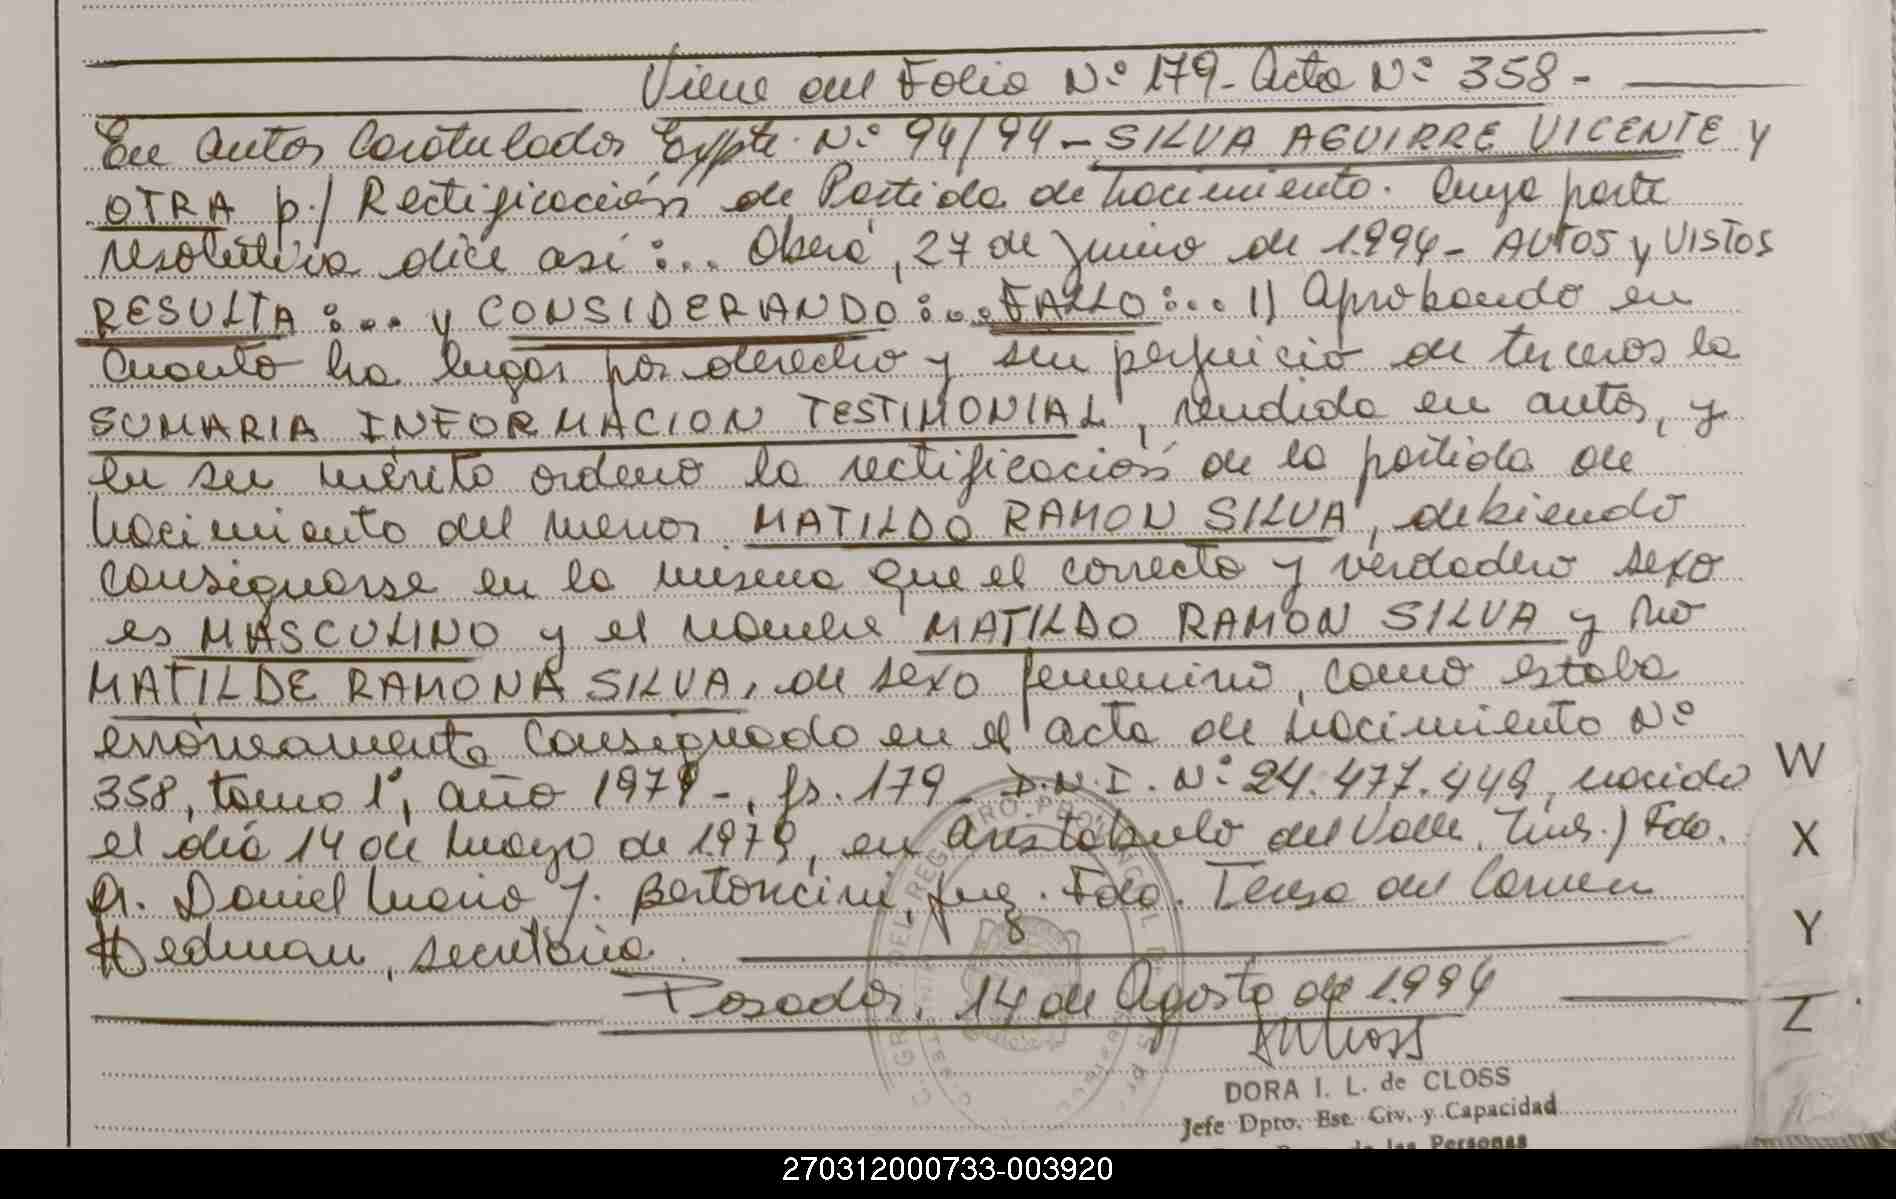 Viene del Folio Nº 179 - Acta Nº 358 -
En autos Caratulados Expte. Nº 94/94 - SILVA AGUIRRE VICENTE y
OTRA p./ Rectificación de Partida de nacimiento. Cuya parte
resolutiva dice así :... Oberá, 27 de junio de 1.994 - AUTOS y VISTOS
RESULTA :... y CONSIDERANDO :... FALLO :... 1) Aprobando en
cuanto ha lugar por derecho y sin perjuicio de terceros la
SUMARIA INFORMACION TESTIMONIAL, rendida en autos, y
en su mérito ordeno la rectificación de la partida de
nacimiento del menor MATILDO RAMON SILVA, debiendo
consignarse en la misma que el correcto y verdadero sexo
es MASCULINO y el nombre MATILDO RAMON SILVA y no
MATILDE RAMONA SILVA, de sexo femenino, como estaba
erróneamente consignado en el acta de nacimiento Nº
358, tomo 1º, año 1979 -, fs. 179 - D.N.I. Nº 24.477.449, nacido
el día 14 de mayo de 1979, en Aristóbulo del Valle, Mnes.) Fdo.
Dr. Daniel Mario J. Bertoncini, Juez. Fdo. Teresa del Carmen
Hedman, secretaria.
Posadas, 14 de Agosto de 1.994
DORA I. L. de CLOSS
Jefe Dpto. Ese. Civ. y Capacidad
de las Personas
W
X
Y
Z
270312000733-003920